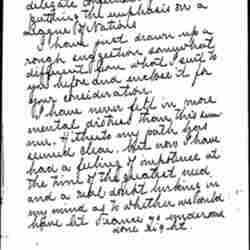 delegate
putting the emphasis on a
League of Nations
I have just drawn up a
rough suggestion somewhat
different from what I sent to
you before and enclose it for
your consideration.
I have never felt in more
mental distress than this sum
mer. Hitherto my path has
seemed clear, but now I have
had a feeling of impotence at
the time of the greatest need
and a real doubt lurking in
my mind as to whether we should
have let France go under and
done right.